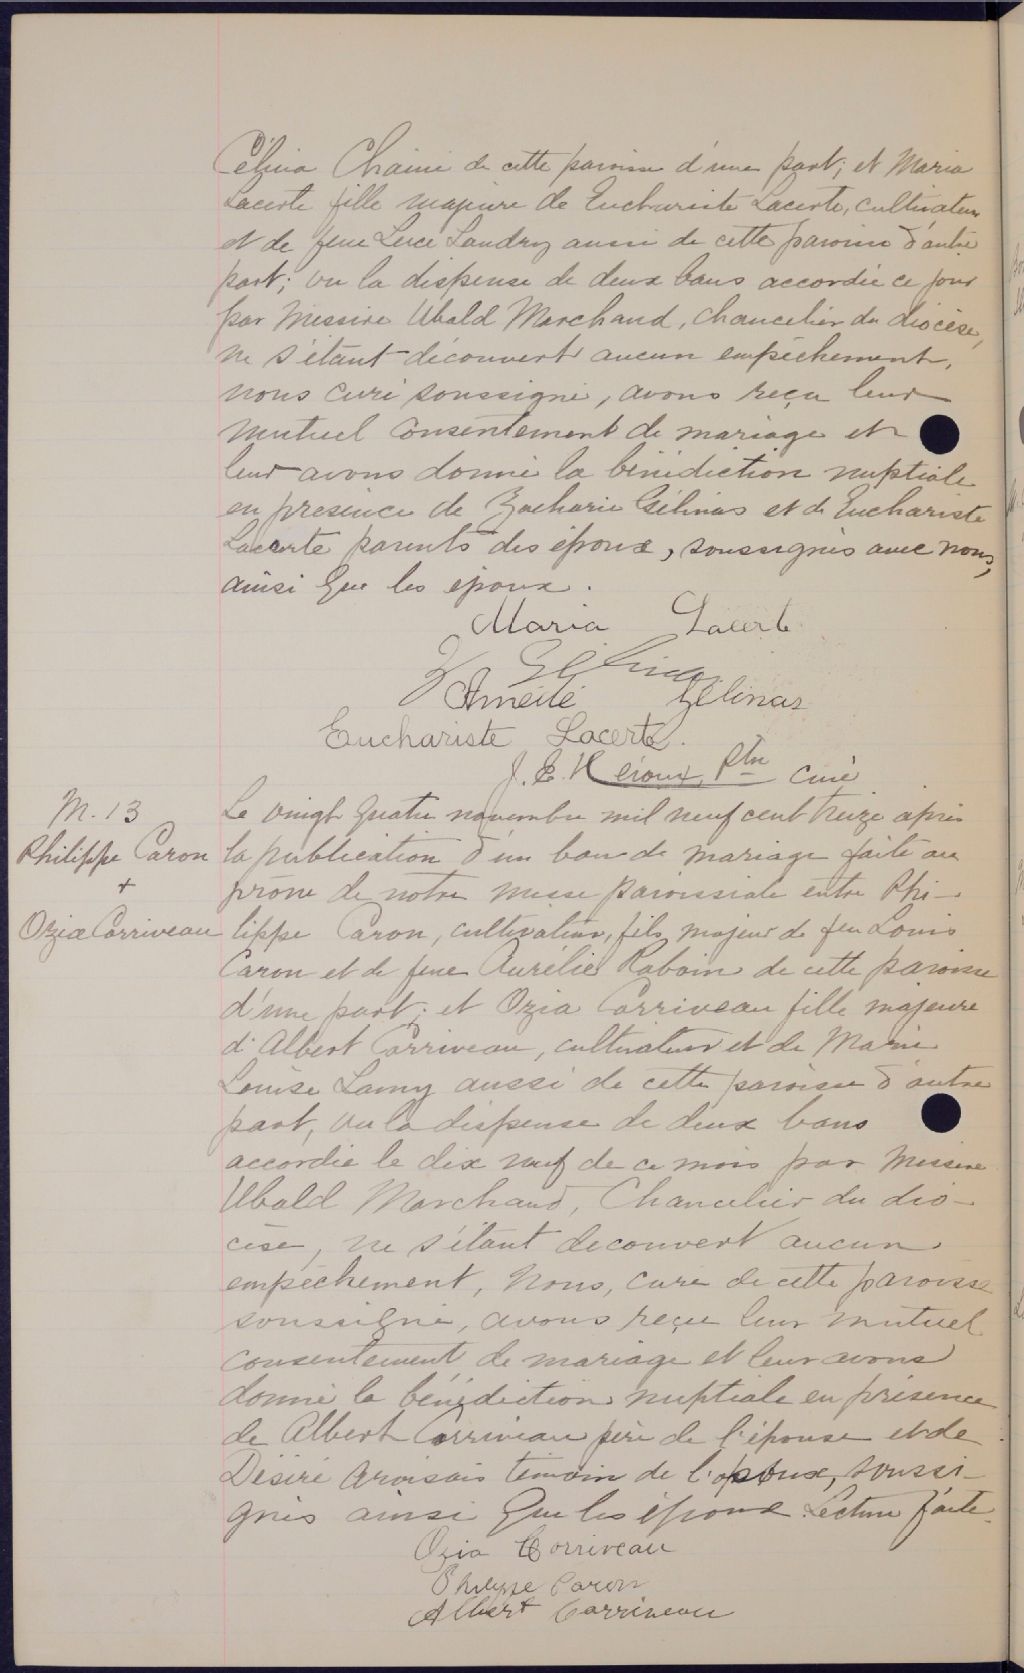 Célina Chainé de cette paroisse d'une part; et Maria
Lacerte fille majeure de Euchariste Lacerte, cultivateur
et de feue Luce Landry aussi de cette paroisse d'autre
part; vu la dispense de deux bans accordée ce jour
par Messire Ubald Marchand, Chancelier du diocèse,
ne s'étant découvert aucun empêchement,
nous curé soussigné, avons reçu leur
mutuel consentement de mariage et
leur avons donné la bénédiction nuptiale
en présence de Zacharie Gélinas et de Euchariste
Lacerte parents des époux, soussignés avec nous,
ainsi que les époux.
Maria Lacerte
Z Gélinas
Gélinas
Euchariste Lacerte.
J. E. Héroux, Ptre curé
M. 13
Philippe Caron
+
Ozia Corriveau
Le vingt quatre novembre mil neuf cent treize après
la publication d'un ban de mariage faite au
prône de notre messe paroissiale entre Phi-
lippe Caron, cultivateur, fils majeur de feu Louis
Caron et de feue Aurélie Raboin de cette paroisse
d'une part; et Ozia Corriveau fille majeure
d'Albert Corriveau, cultivateur et de Marie
Louise Lamy aussi de cette paroisse d'autre
part, vu la dispense de deux bans
accordée le dix neuf de ce mois par Messire
Ubald Marchand, Chancelier du dio-
cèse, ne s'étant decouvert aucun
empêchement, Nous, curé de cette paroisse
soussigné, avons reçu leur mutuel
consentement de mariage et leur avons
donné la bénédiction nuptiale en présence
de Albert Corriveau père de l'épouse et de
Désiré témoin de l'époux, soussi-
gnés ainsi que les époux. Lecture faite.
Ozia Corriveau
Philippe Caron
Albert Corriveau